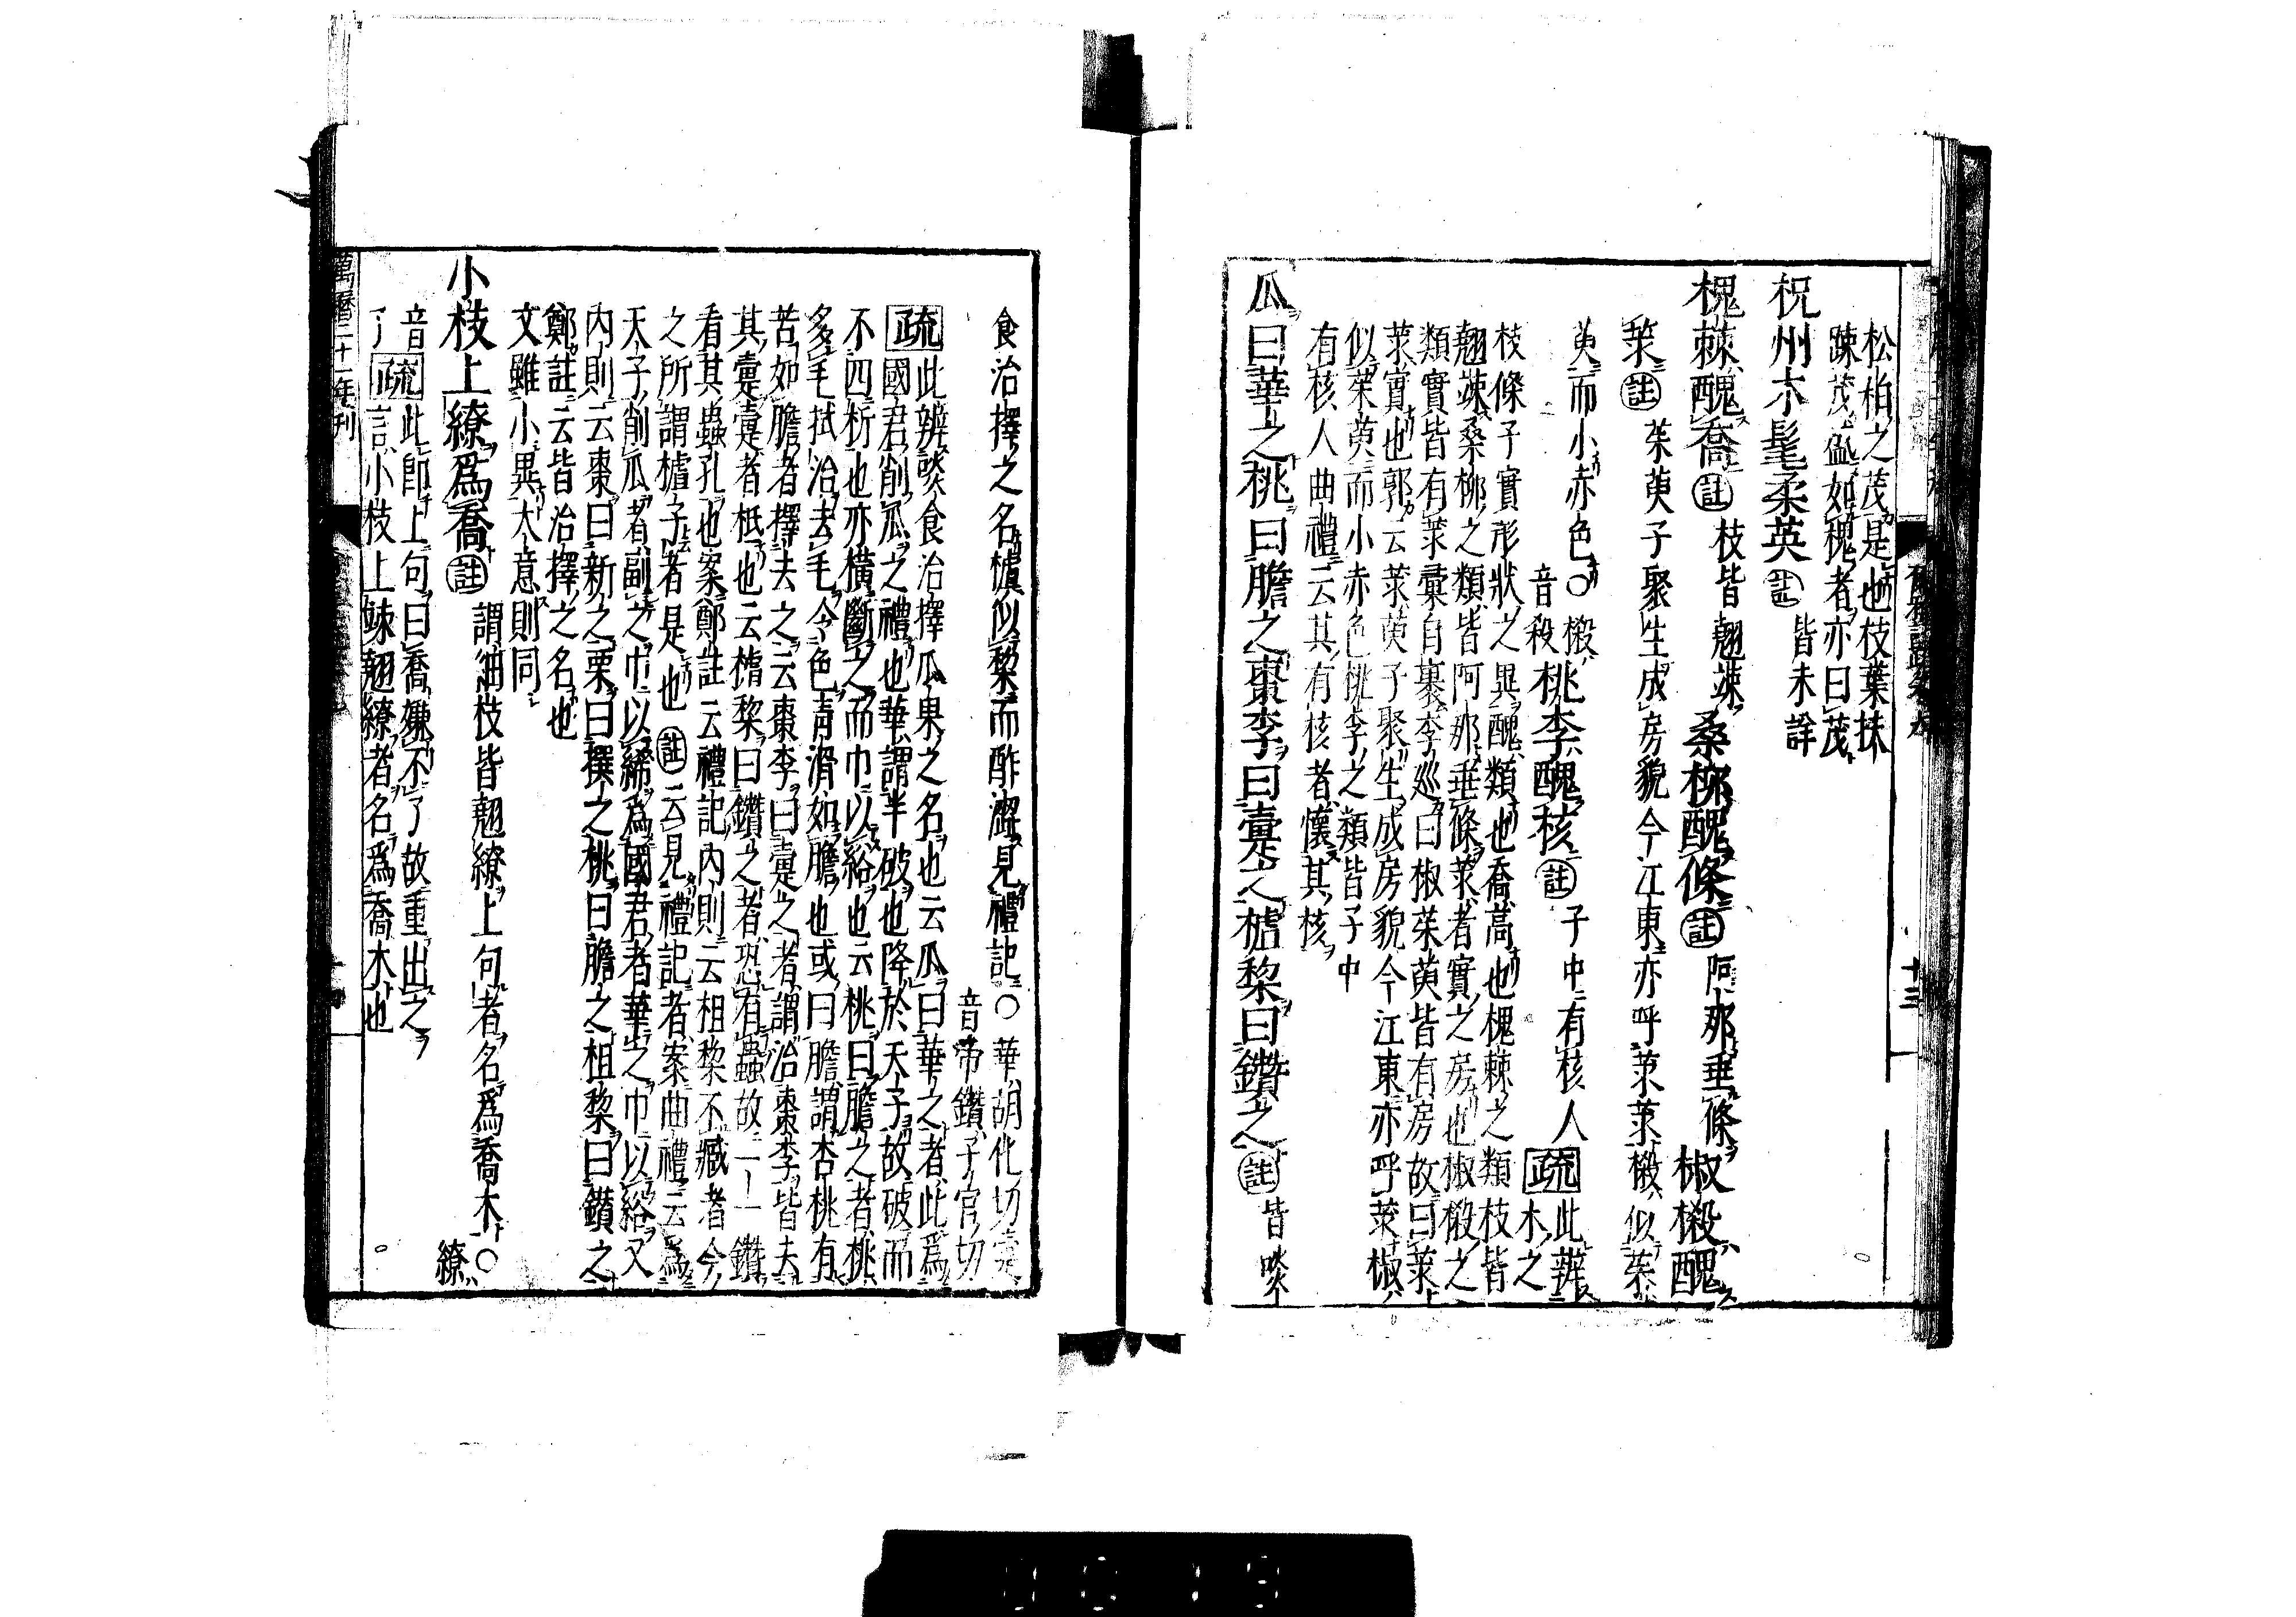 松栢之茂是也枝葉扶
踈茂盛如槐者亦曰茂
祝州木髦柔英註皆未詳
槐棘醜喬註枝皆翹竦桑桺醜條註阿那垂條椒樧醜
莍註茱萸子聚生成房貌今江東亦呼莍莍樧似茱
萸而小赤色○樧
音殺桃李醜核註子中有核人疏此辨
木之
枝條子實形狀之異醜類也喬高也槐棘之類枝皆
翹竦桑桺之類皆阿那垂條莍者實之房也椒樧之
類實皆有莍彚自裹李巡曰椒茱萸皆有房故曰莍
莍實也郭云莍萸子聚生成房貌今江東亦呼莍椒
似茱萸而小赤色桃李之類皆子中
有核人曲禮云其有核者懷其核
瓜曰華之桃曰膽之棗李曰疐之樝棃曰鑽之註皆啖
食治擇之名樝似棃而酢澀見禮記○華胡化切疐
音帝鑽子官切
疏此辨啖食治擇瓜果之名也云瓜曰華之者此爲
國君削瓜之禮也華謂半破也降於天子故破而
不四析也亦橫斷之而巾以綌也云桃曰膽之者桃
多毛拭治去毛令色青滑如膽也或曰膽謂杏桃有
苦如膽者擇去之云棗李曰疐之者謂治棗李皆去
其疐疐者柢也云樝棃曰鑽之者恐有蟲故一一鑽
看其蟲孔也案鄭註云禮記内則云柤棃不臧者今
之所謂樝子者是也註云見禮記者案曲禮云爲
天子削瓜者副之巾以絺爲國君者華之巾以綌又
内則云棗曰新之栗曰撰之桃曰膽之柤棃曰鑽之
鄭註云皆治擇之名也
文雖小異大意則同
小枝上繚爲喬註謂細枝皆翹繚上句者名爲喬木○
繚
音
了疏此即上句曰喬嫌不了故重出之
言小枝上竦翹繚者名爲喬木也
萬曆二十一年刊
十三